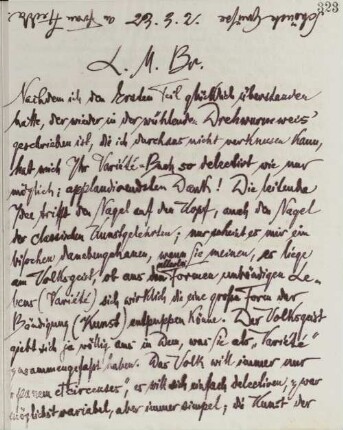 323
Schönste Grüße a. Frau Hertha 23.3.2.
L. M. Br.
Nachdem ich den Ersten Teil glücklich überstanden
hatte, der wieder in der wühlenden Drehwurmweis'
geschrieben ist, die ich durchaus nicht verknusen kann,
hat mich Ihr Variété-Buch so delectirt wie nur
möglich; applaudirendsten Dank! Die leitende
Idee trifft den Nagel auf den Kopf, auch den Nagel
der classischen Kunstgelehrten; nur scheint es mir ein
bischen danebengehauen, wenn Sie meinen, es liege
allerlei
am Volksgeist, ob aus den Formen unbändigen Le-
bens (Variété) sich wirklich die eine große Form der
Bändigung (Kunst) entpuppen könne. Der Volksgeist
giebt sich ja völlig aus in Dem, was Sie als "Variété"
zusammengefaßt haben. Das Volk will immer nur
panem et circenses, er will sich einfach delectiren, zwar
möglichst variabel, aber immer simpel; die Kunst der